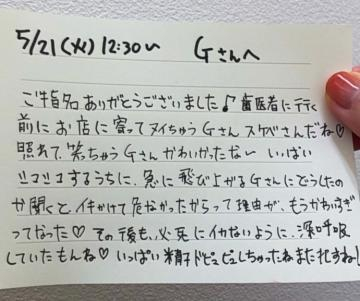 5/21(火)12:30〜 Gさんへ
ご指名ありがとうございました♪歯医者に行く
前にお店に寄ってヌイちゃうGさんスケベさんだね♡
照れて、笑ちゃうGさんかわいかったな〜 いっぱい
シコシコするうちに、急に飛び上がるGさんにどうしたの
か聞くと、イキかけて危なかったからって理由が、もうかわいすぎ
ってなった♡ その後も、必死にイカないように、深呼吸
していたもんね♡ いっぱい精子ドピュピュしちゃったね また